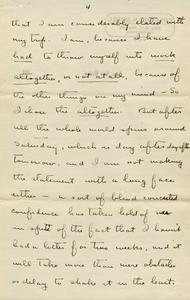 4
that I am considerably elated with
my trip. I am, because I have
had to throw myself into work
altogether, or not at all, because of
the other things on my mind – So
I chose the altogether. But after
all the whole world spins around
Saturday, which is day after day after
tomorrow, and I am not making
the statement with a long face
either – a sort of blind conceited
confidence has taken hold of me
in spite of the fact that I haven't
had a letter for two weeks, and it
will take more than mere obstacles
or delay to shake it in the least.